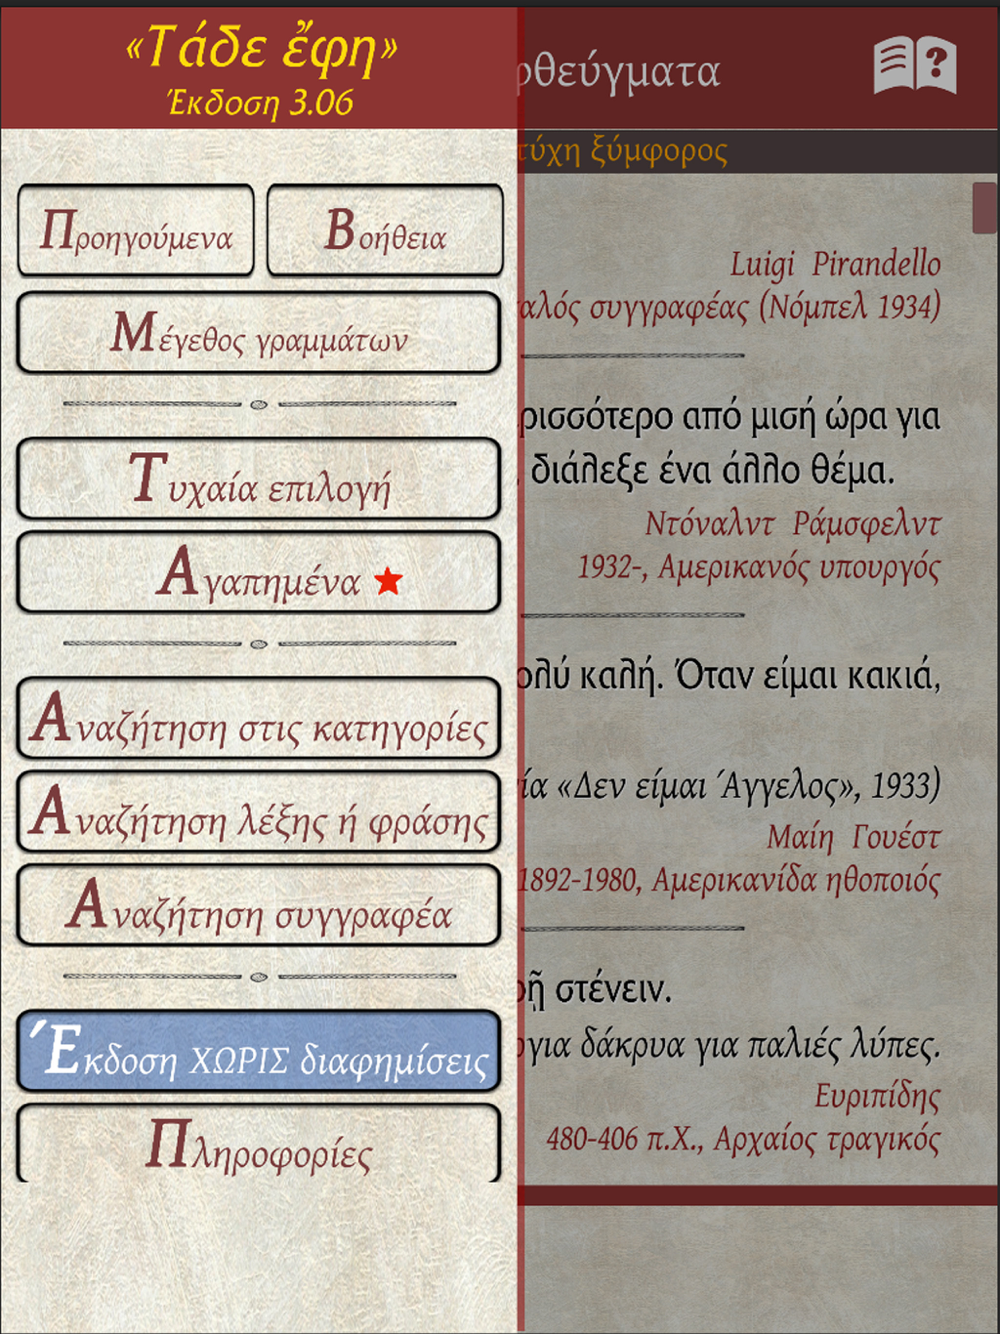 «Τάδε ἔφη»
Έκδοση 3.06
Προηγούμενα
Βοήθεια
Μέγεθος γραμμάτων
Τυχαία επιλογή
Αγαπημένα
Αναζήτηση στις κατηγορίες
Αναζήτηση λέξης ή φράσης
Αναζήτηση συγγραφέα
Έκδοση ΧΩΡΙΣ διαφημίσεις
Πληροφορίες
ξύμφορος
Luigi Pirandello
συγγραφέας (Νόμπελ 1934)
από μισή ώρα για
διάλεξε ένα άλλο θέμα.
Ντόναλντ Ράμσφελντ
1932-, Αμερικανός υπουργός
καλή. Όταν είμαι κακιά,
«Δεν είμαι Άγγελος», 1933)
Μαίη Γουέστ
1892-1980, Αμερικανίδα ηθοποιός
στένειν.
δάκρυα για παλιές λύπες.
Ευριπίδης
480-406 π.Χ., Αρχαίος τραγικός